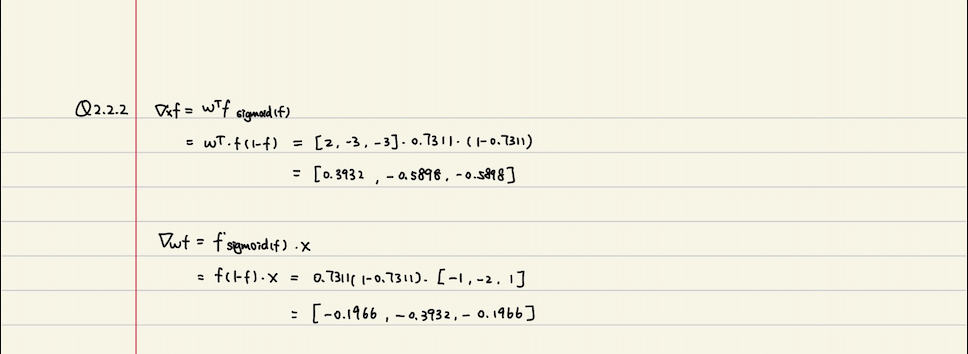 Q2.2.2 ∇xf = wᵀf sigmoid(f)
= wᵀ·f(1-f) = [2, -3, -3]·0.7311·(1-0.7311)
= [0.3932, -0.5898, -0.5898]
∇wf = f'sigmoid(f)·x
= f(1-f)·x = 0.7311(1-0.7311)·[-1, -2, 1]
= [-0.1966, -0.3932, -0.1966]